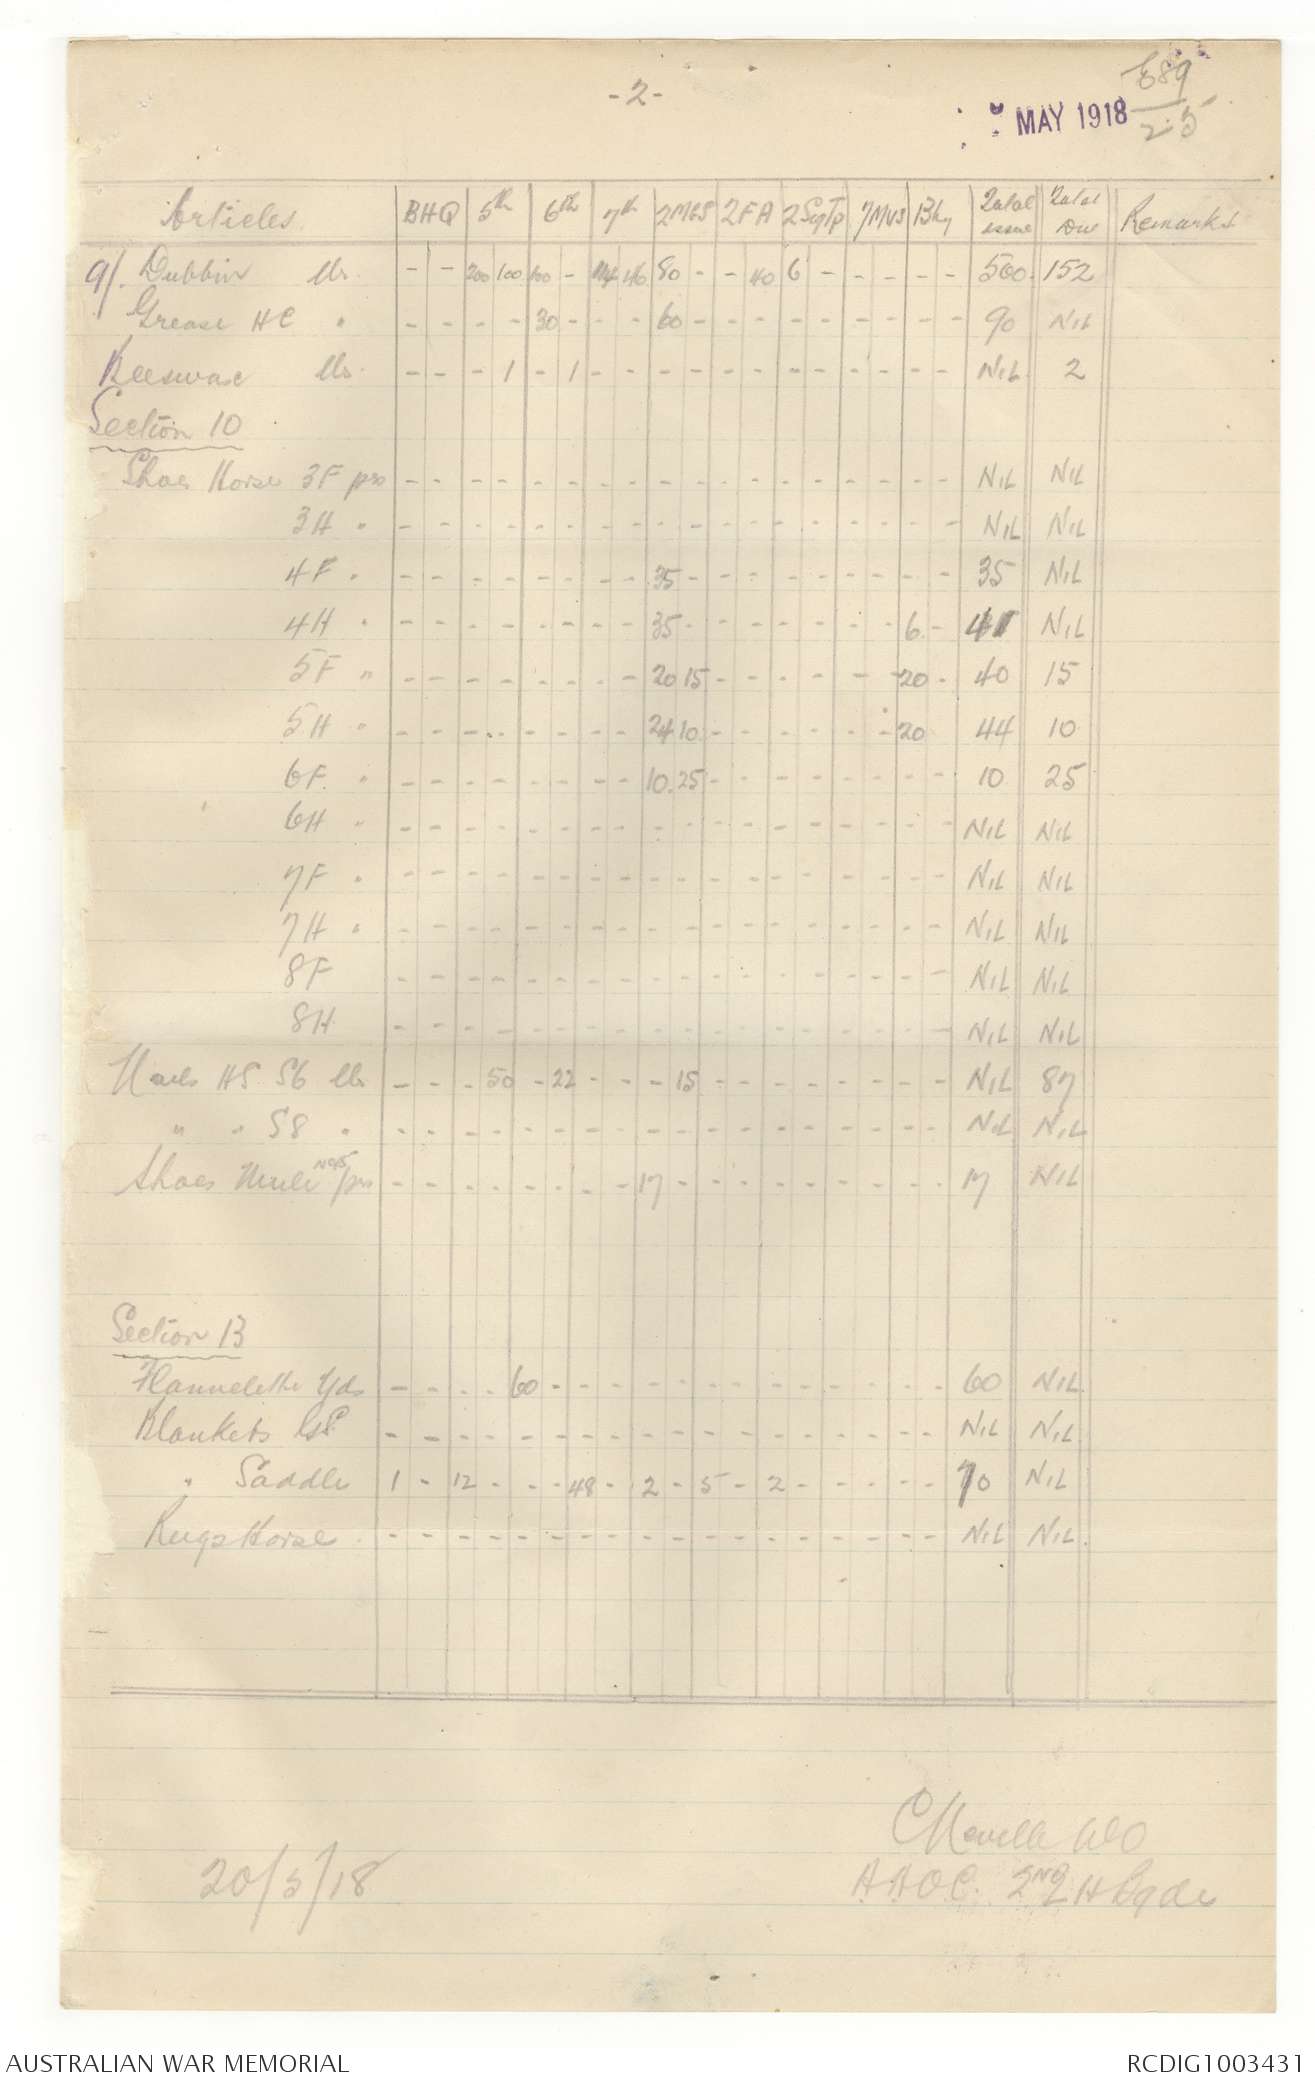 -2-
E89
25
MAY 1918
Articles BHQ 5th 6th 7th 2MGS 2FA 2SigTp 7MVS B'hy Total issue Total Due Remarks
9/. Dubbin lbs. - - 200 100 100 - 114 46 80 - - 40 6 - - - - - 500 152
Grease HC " - - - - 30 - - - 60 - - - - - - - - - 90 NIL
Beeswax lbs. - - - 1 - 1 - - - - - - - - - - - - NIL 2
Section 10
Shoes Horse 3F prs - - - - - - - - - - - - - - - - - - NIL NIL
3H " - - - - - - - - - - - - - - - - - - NIL NIL
4F " - - - - - - - - 35 - - - - - - - - - 35 NIL
4H " - - - - - - - - 35 - - - - - - - 6 - 41 NIL
5F " - - - - - - - - 20 15 - - - - - - 20 - 40 15
5H " - - - - - - - - 24 10 - - - - - - 20 44 10
6F. " - - - - - - - - 10. 25 - - - - - - - - 10 25
6H " - - - - - - - - - - - - - - - - - - NIL NIL
7F " - - - - - - - - - - - - - - - - - - NIL NIL
7H " - - - - - - - - - - - - - - - - - - NIL NIL
8F - - - - - - - - - - - - - - - - - - NIL NIL
8H - - - - - - - - - - - - - - - - - - NIL NIL
Nails HS S6 lbs - - - 50 - 22 - - - 15 - - - - - - - - NIL 87
" " S8 " - - - - - - - - - - - - - - - - - - NIL NIL
Shoes Mule No 5 prs - - - - - - - - 17 - - - - - - - - - 17 NIL
Section 13
Flannelette Yds - - - - 60 - - - - - - - - - - - - - 60 NIL
Blankets GS - - - - - - - - - - - - - - - - - - NIL NIL
" Saddle 1 - 12 - - - 48 - 2 - 5 - 2 - - - - - 70 NIL
Rugs Horse - - - - - - - - - - - - - - - - - - NIL NIL
20/5/18
AAOC. 2nd LH Bgde
AUSTRALIAN WAR MEMORIAL
RCDIG1003431